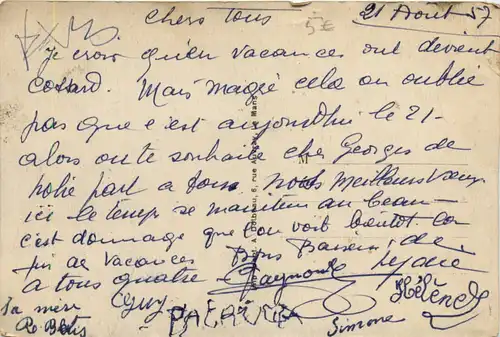 chers Tous
21 Août 57
5€
je crois qu'en vacances ont devient
cossard. Mais malgré cela on oublie
pas que c'est aujourd'hui le 21-
alors on te souhaite cher Georges de
notre part a tous nos Meilleurs Vœux
ici le temps se maintien au beau-
c'est dommage que l'on voit bientôt la
fin de vacances Bons Baisers de
a tous quatre - Raymonde
Guy
PATRICK
Simone
Hélène
La mère